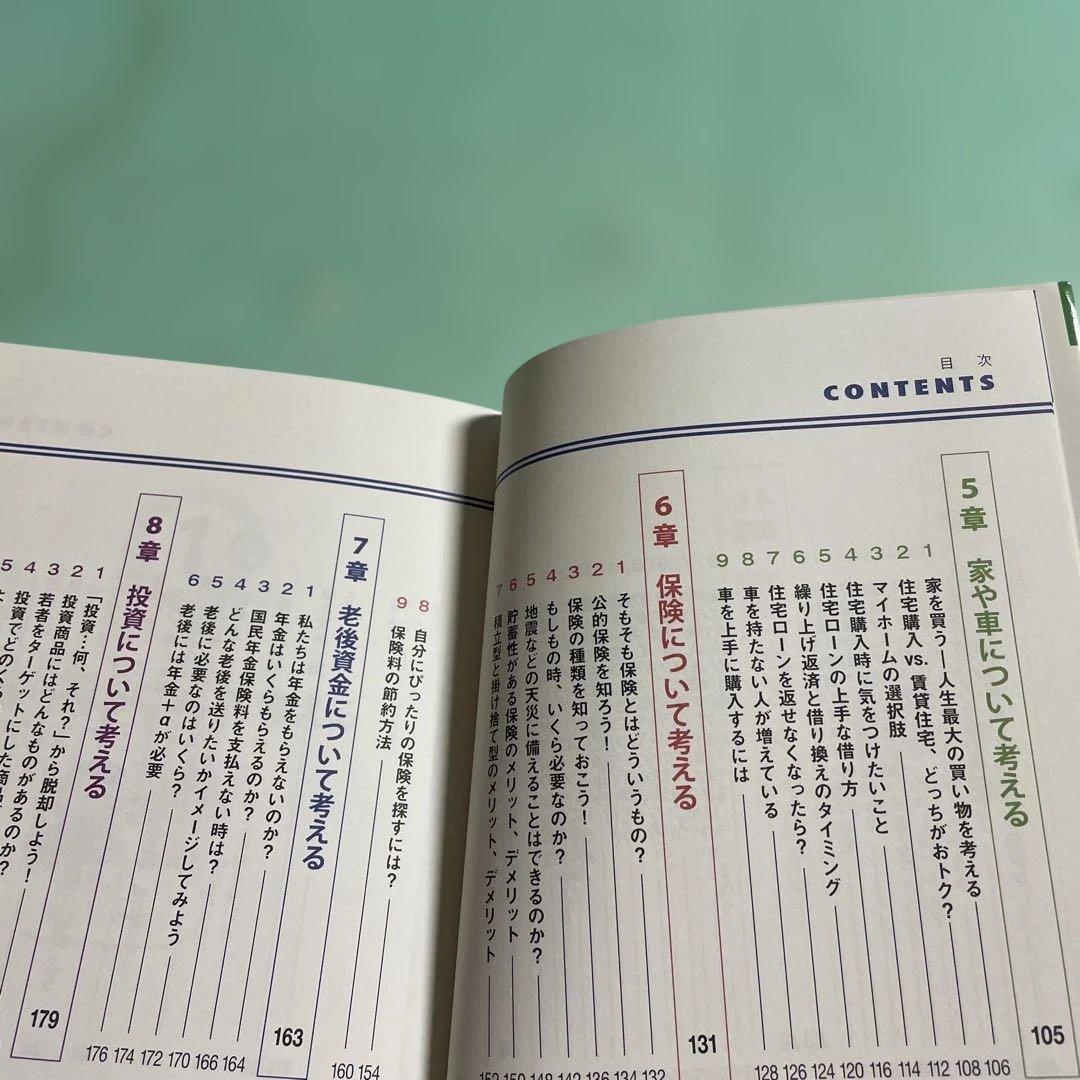 目次
CONTENTS
5章 家や車について考える 105
1 家を買う―人生最大の買い物を考える 106
2 住宅購入 vs. 賃貸住宅、どっちがおトク? 108
3 マイホームの選択肢 112
4 住宅購入時に気をつけたいこと 114
5 住宅ローンの上手な借り方 116
6 繰り上げ返済と借り換えのタイミング 120
7 住宅ローンを返せなくなったら? 124
8 車を持たない人が増えている 126
9 車を上手に購入するには 128
6章 保険について考える 131
1 そもそも保険とはどういうもの? 132
2 公的保険を知ろう! 134
3 保険の種類を知っておこう! 136
4 もしもの時、いくら必要なのか? 142
5 地震などの天災に備えることはできるのか? 148
6 貯蓄性がある保険のメリット、デメリット 150
7 積立型と掛け捨て型のメリット、デメリット 152
8 自分にぴったりの保険を探すには? 154
9 保険料の節約方法 160
7章 老後資金について考える 163
1 私たちは年金をもらえないのか? 164
2 年金はいくらもらえるのか? 166
3 国民年金保険料を支払えない時は? 170
4 どんな老後を送りたいかイメージしてみよう 172
5 老後に必要なのはいくら? 174
6 老後には年金+αが必要 176
8章 投資について考える 179
1 「投資…何、それ?」から脱却しよう!
2 投資商品にはどんなものがあるのか?
3 若者をターゲットにした商品
4 投資でどのくら
5